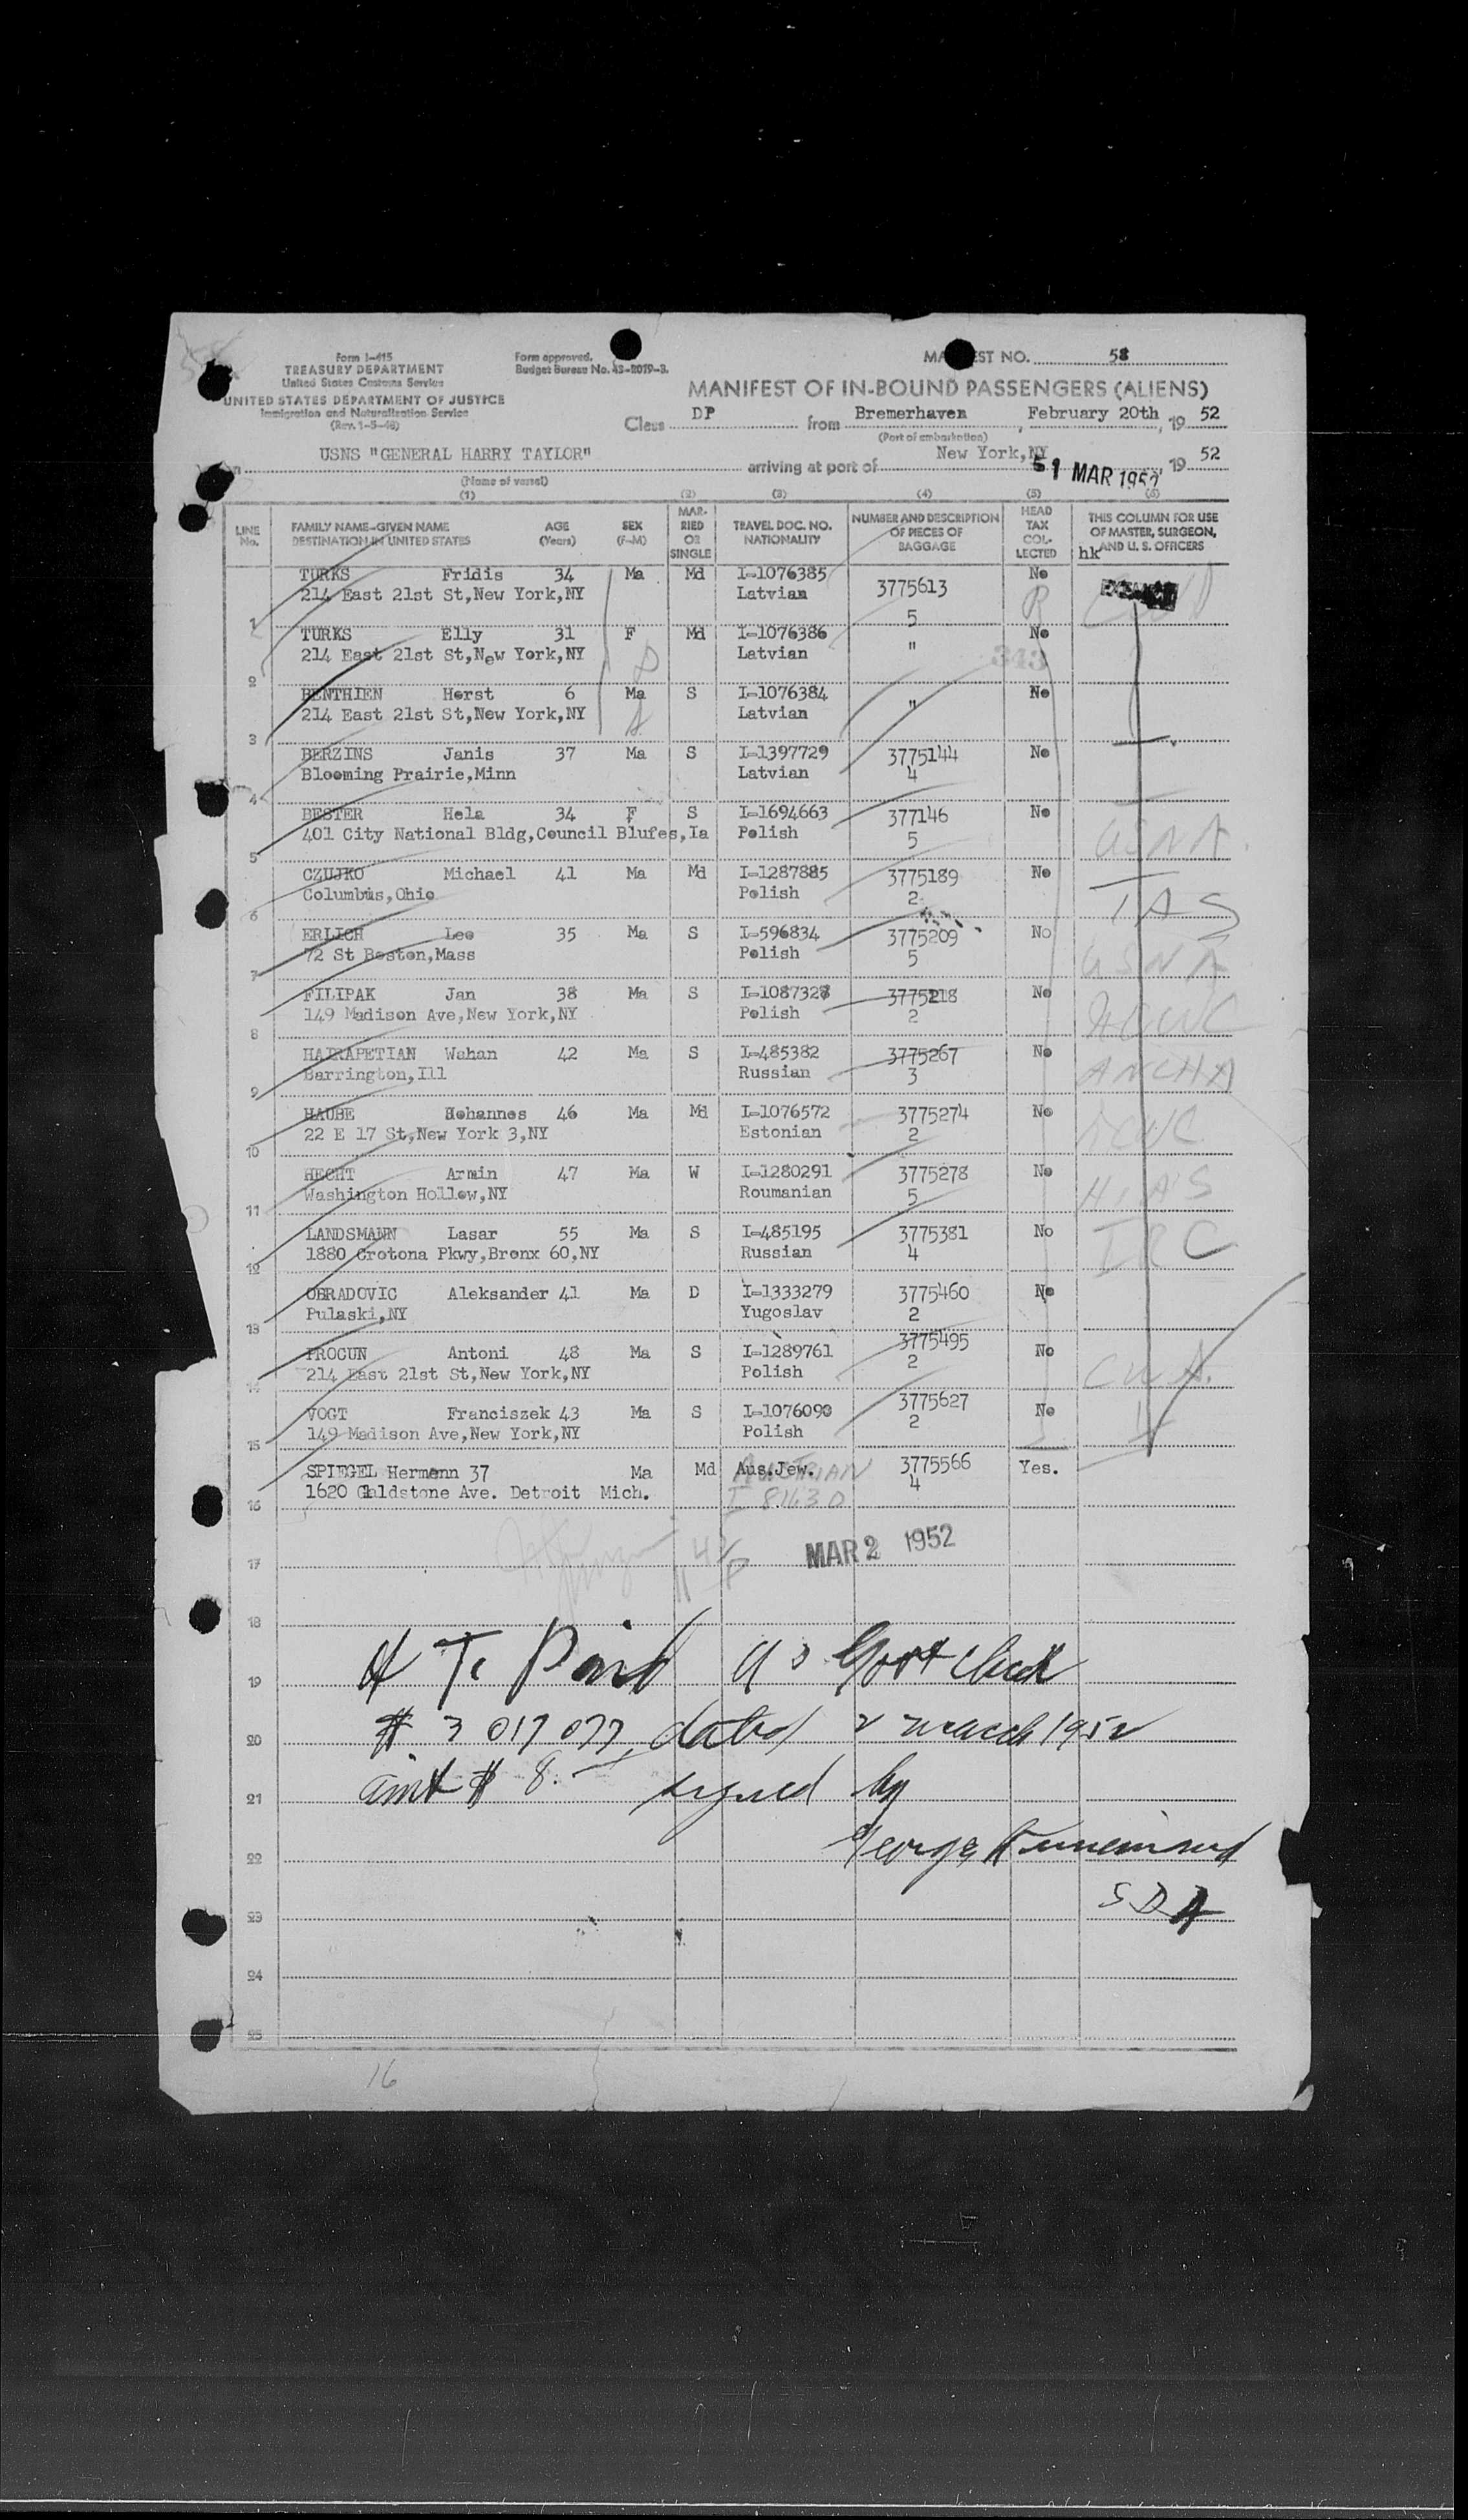 Form I-415
TREASURY DEPARTMENT
United States Customs Service
UNITED STATES DEPARTMENT OF JUSTICE
Immigration and Naturalization Service
(Rev. 1-5-48)
Form approved.
Budget Bureau No. 43-R019-3.
MANIFEST NO. 58
MANIFEST OF IN-BOUND PASSENGERS (ALIENS)
Class DP from Bremerhaven, February 20th, 19 52
(Port of embarkation)
USNS "GENERAL HARRY TAYLOR" arriving at port of New York,NY 1 MAR 1952 19 52
(Name of vessel)
(1) (2) (3) (4) (5) (6)
LINE No. FAMILY NAME-GIVEN NAME DESTINATION IN UNITED STATES AGE (Years) SEX (F-M) MARRIED OR SINGLE TRAVEL DOC. NO. NATIONALITY NUMBER AND DESCRIPTION OF PIECES OF BAGGAGE HEAD TAX COLLECTED THIS COLUMN FOR USE OF MASTER, SURGEON, AND U. S. OFFICERS
hk
TURKS Fridis 34 Ma Md I-1076385 3775613 No
1 214 East 21st St,New York,NY Latvian 5
TURKS Elly 31 F Md I-1076386 " No
2 214 East 21st St,New York,NY Latvian 343
BENTHIEN Horst 6 Ma S I-1076384 " No
3 214 East 21st St,New York,NY Latvian
BERZINS Janis 37 Ma S I-1397729 3775144 No
4 Blooming Prairie,Minn Latvian 4
BESTER Hela 34 F S I-1694663 377146 No
5 401 City National Bldg,Council Blufes,Ia Polish 5 USNA
CZUJKO Michael 41 Ma Md I-1287885 3775189 No
6 Columbus,Ohio Polish 2 IAS
ERLICH Leo 35 Ma S I-596834 3775209 No
7 72 St Boston,Mass Polish 5 USNA
FILIPAK Jan 38 Ma S I-1087328 3775218 No
8 149 Madison Ave,New York,NY Polish 2 NCWC
HAIRAPETIAN Wahan 42 Ma S I-485382 3775267 No
9 Barrington,Ill Russian 3 ANCHA
HAUBE Hohannes 46 Ma Md I-1076572 3775274 No
10 22 E 17 St,New York 3,NY Estonian 2 NCWC
HECHT Armin 47 Ma W I-1280291 3775278 No
11 Washington Hollow,NY Roumanian 5 HIAS
LANDSMANN Lasar 55 Ma S I-485195 3775381 No
12 1880 Crotona Pkwy,Bronx 60,NY Russian 4 IRC
OBRADOVIC Aleksander 41 Ma D I-1333279 3775460 No
13 Pulaski,NY Yugoslav 2
PROCUN Antoni 48 Ma S I-1289761 3775495 No
14 214 East 21st St,New York,NY Polish 2
VOGT Franciszek 43 Ma S I-1076090 3775627 No
15 149 Madison Ave,New York,NY Polish 2
SPIEGEL Hermann 37 Ma Md Aus.Jew. AUSTRIAN 3775566 Yes.
16 1620 Galdstone Ave. Detroit Mich. I 81630 4
17 MAR 2 1952
18
19 H Tx Paid US Govt check
20 # 3 017 077, dated 2 march 1952
21 amt $ 8. signed by
22 George
23 SDA
24
25
16